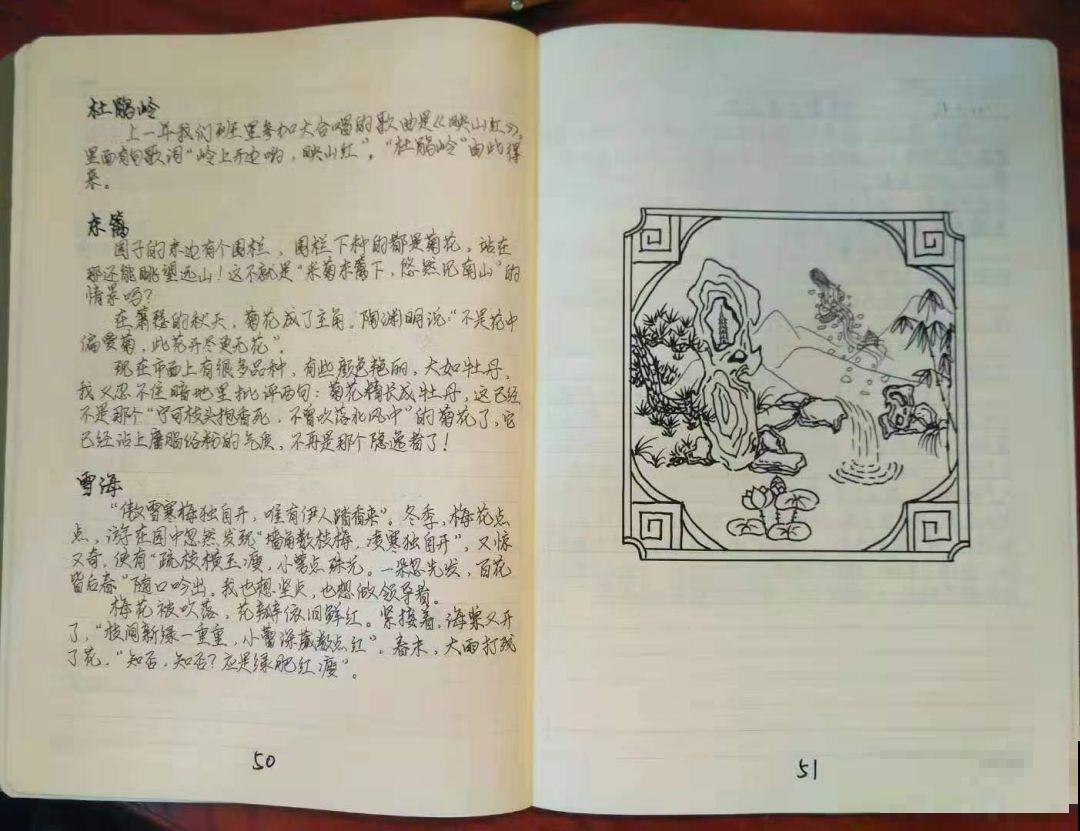 杜鹃岭
上一年我们班里参加大合唱的歌曲是《映山红》,
里面有句歌词“岭上开遍哟，映山红”。“杜鹃岭”由此得
来。
东篱
园子的东边有个围栏，围栏下种的都是菊花，站在
那还能眺望远山！这不就是“采菊东篱下，悠然见南山”的
情景吗？
在萧愁的秋天，菊花成了主角。陶渊明说:“不是花中
偏爱菊，此花开尽更无花”。
现在市面上有很多品种，有些颜色艳丽，大如牡丹，
我又忍不住暗地里批评两句：菊花精长成牡丹，这已经
不是那个“宁可枝头抱香死，不曾吹落北风中”的菊花了，它
已经沾上庸脂俗粉的气质，不再是那个隐逸者了！
雪海
“傲雪寒梅独自开，唯有伊人踏香来”。冬季，梅花点
点，游年在园中忽然发现“墙角数枝梅，凌寒独自开”，又惊
又奇，便有“疏枝横玉瘦，小萼点珠光。一朵忽先发，百花
皆后春”随口吟出。我也想坚贞，也想做领导者。
梅花被吹落，花瓣依旧鲜红。紧接着，海棠又开
了，“枝间新绿一重重，小蕾深藏数点红”。春末，大雨打残
了花，“知否，知否？应是绿肥红瘦”。
50
51